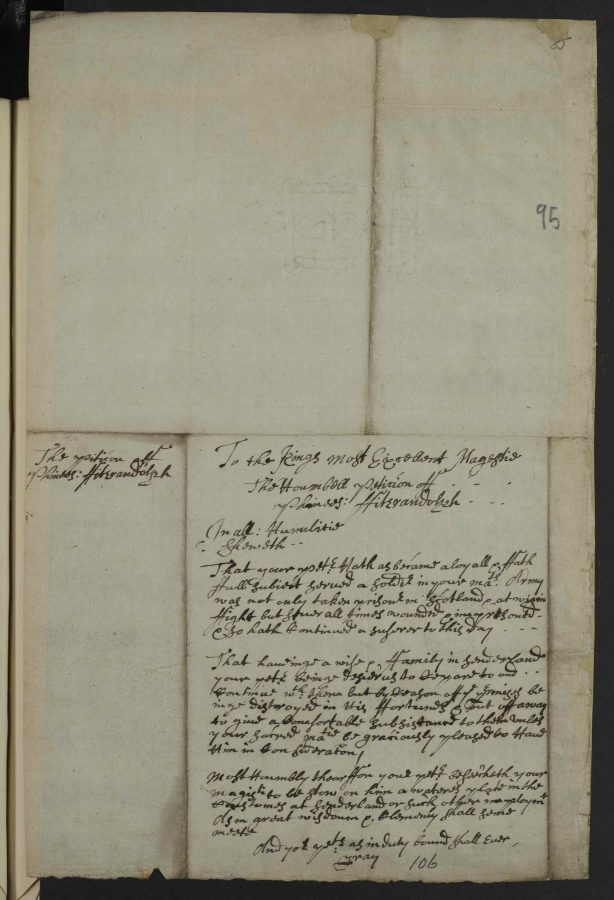 85
95
The peticon off
Phinees: ffitzrandolph
To the Kings most Excellent Magestie
The Houmbell petticon off
Phinees: ffitzrandolph
In all: Humilitie
Sheweth
That your petr: Hath as became a loyall & ffath
full subiect served a soldr in your mats: Army
was not only taken prisonr in Scotland & at wigin
ffight but severall times wounded & imprisoned
& so hath Continued a suferer to this day
That haueinge a wife & Family in Sunderland
your petr beinge desierus to repare to and
Continue wth them but by reason off ye premises be
inge distroyed in his ffortunes & put off away
to give a Comfortable subsistance to them unles
your sacred matie be graciously pleased to Haue
Him in Consideration
Most Houmbly thearffor your petr beseecheth your
magistie to be stow on him a waters place in the
Customes at Sunderland or such other imploymt
As in great wisdoum & Clemency shall seme
meete
And yor petr as in duty bound shall Ever
pray
106